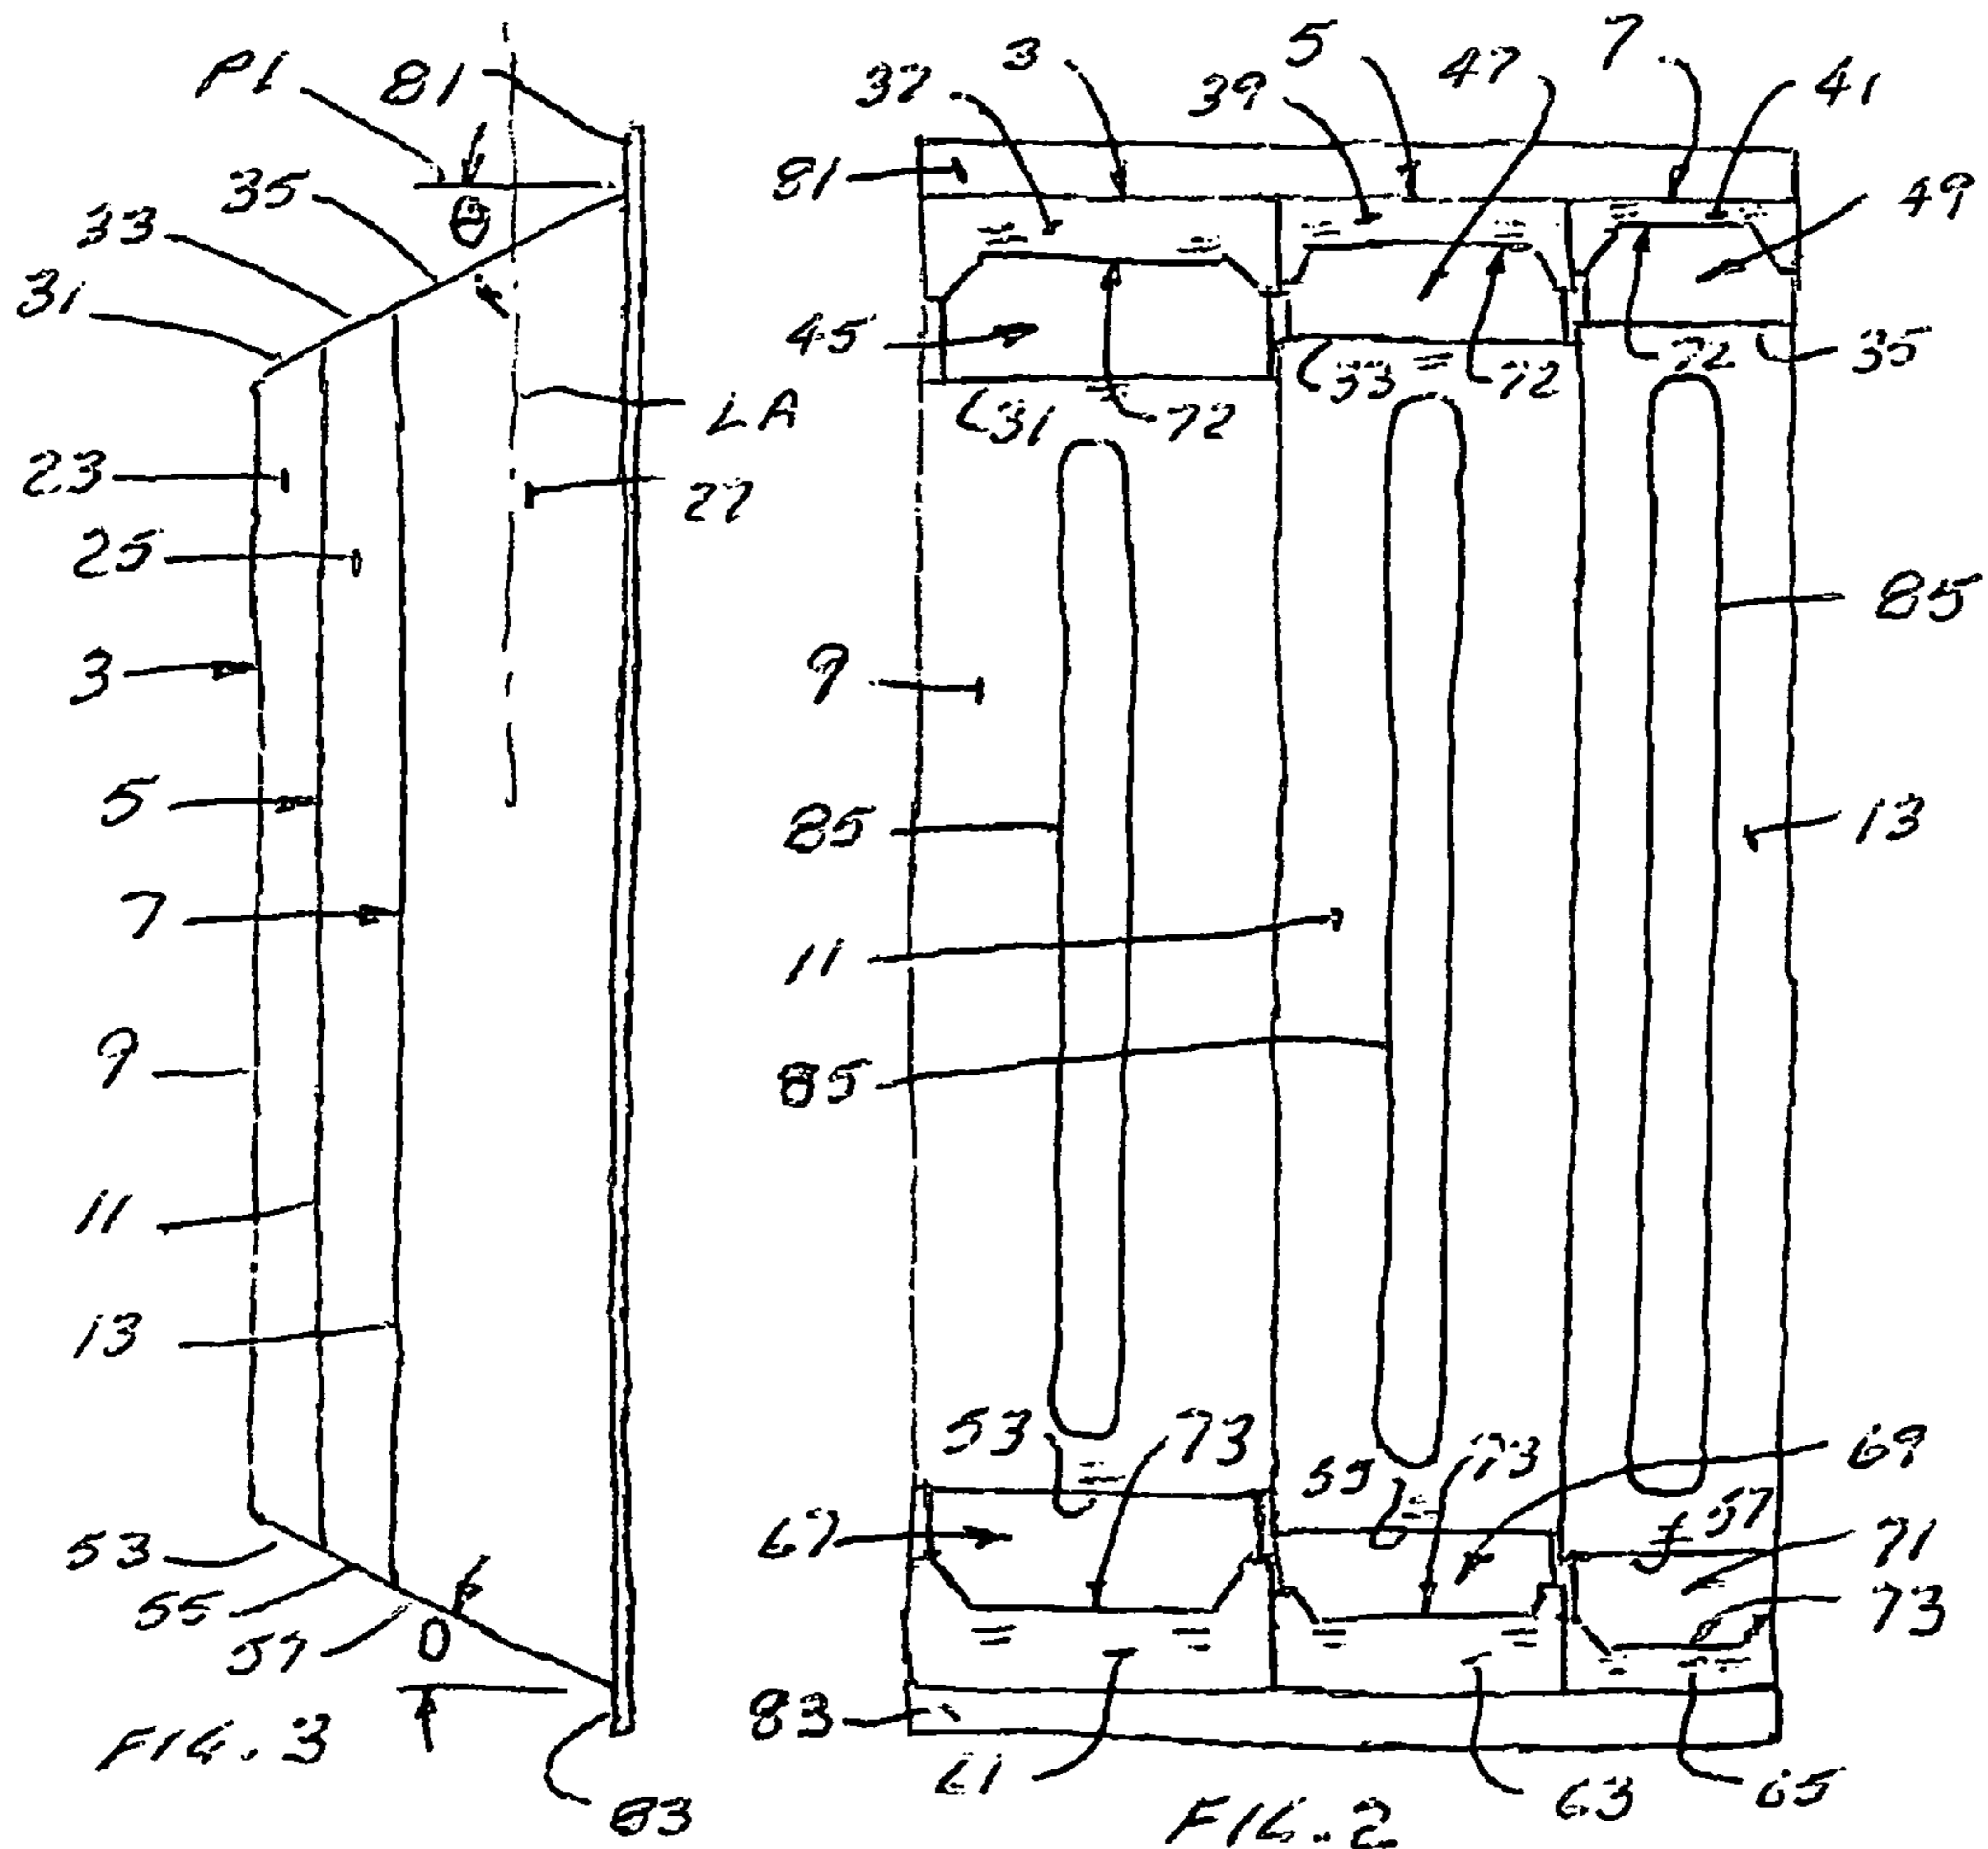 P1
81
35
θ
33
31
LA
23
27
25
3
5
7
9
11
13
53
55
57
θ
FIG. 3
83
37
3
39
5
47
7
41
81
49
45
31
72
33
72
72
35
9
85
85
13
11
85
53
73
55
73
69
67
57
71
73
83
61
63
65
FIG. 2